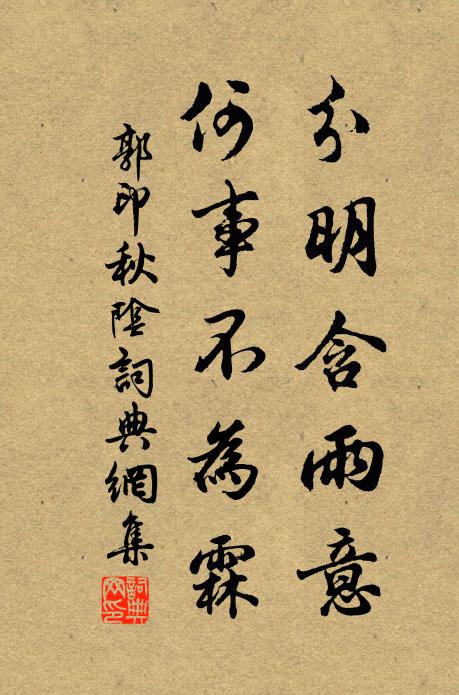 分明含雨意
何事不為霖
郭印秋陰詞典網集
詞典網印